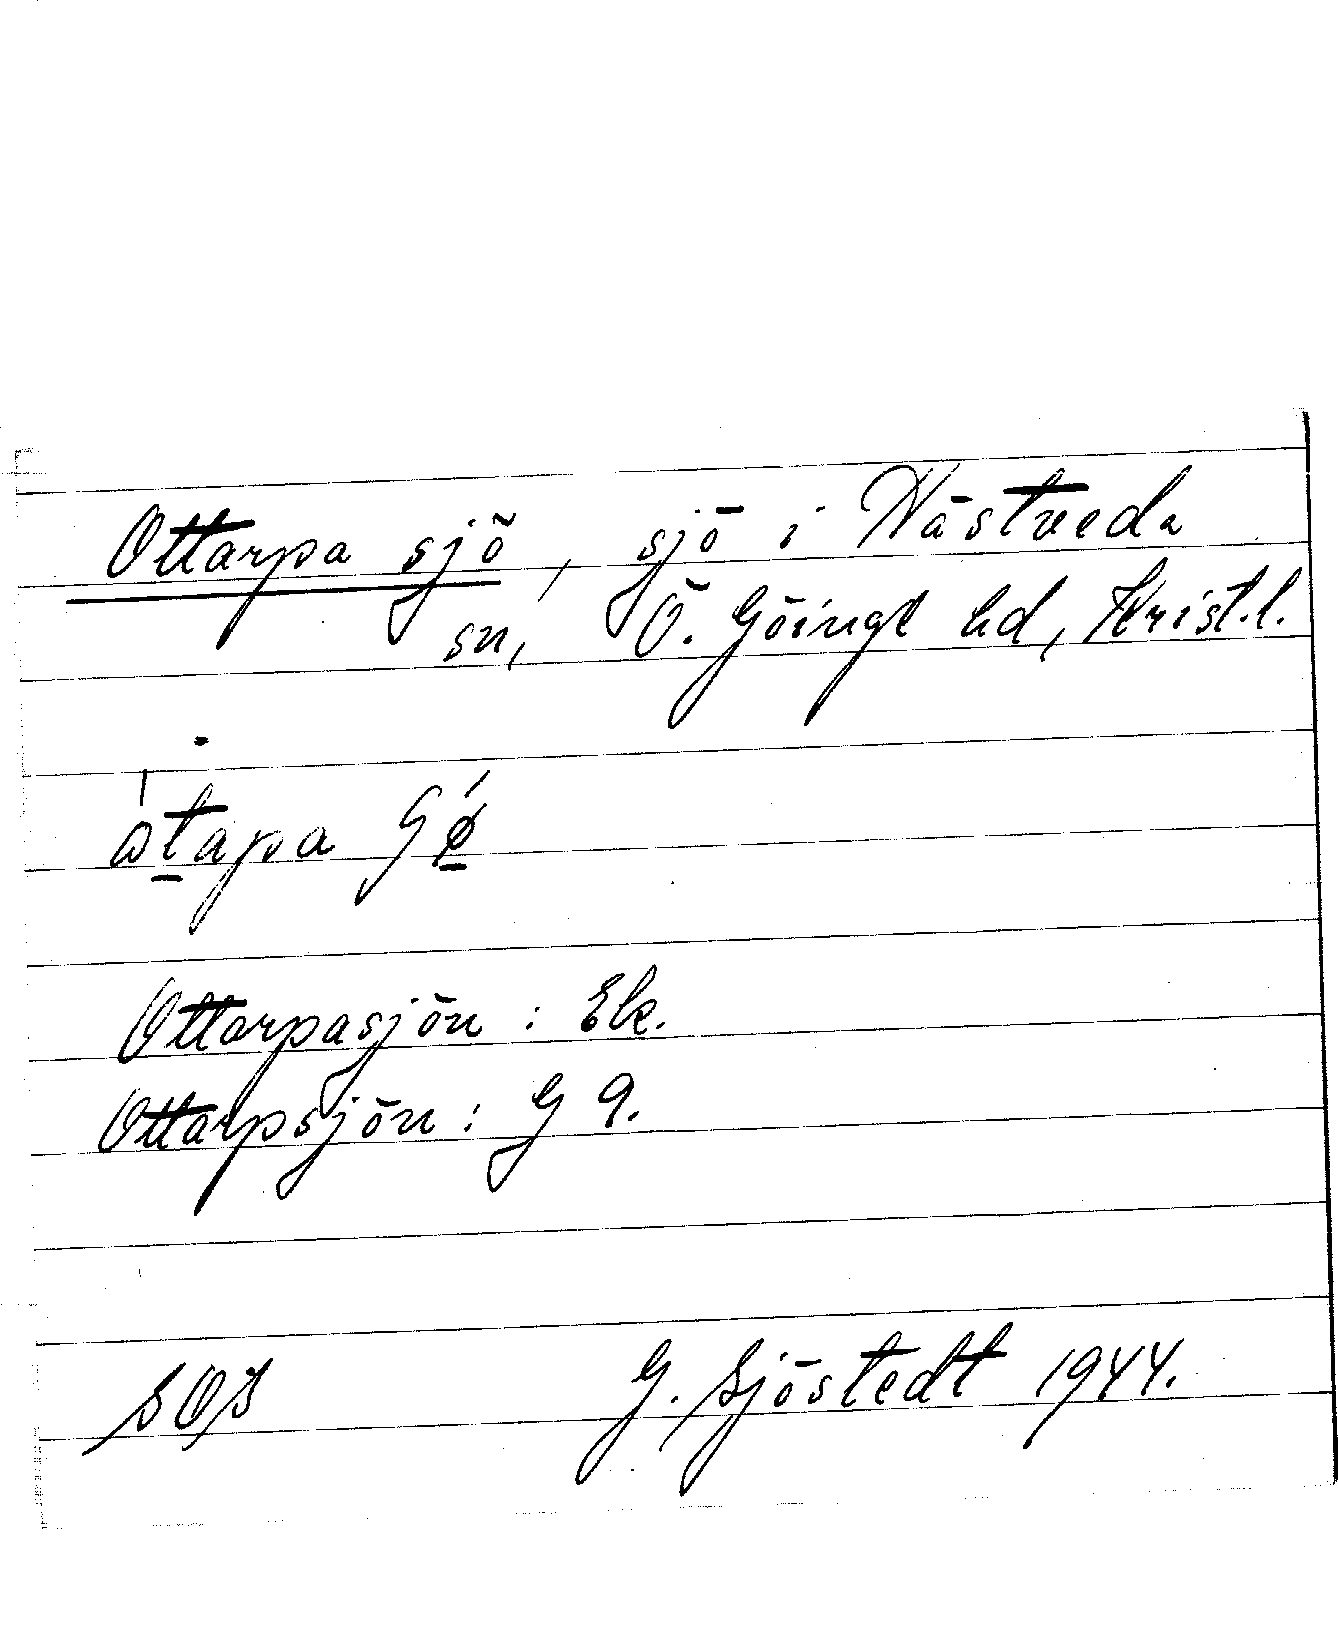 Ottarpa sjö, sjö i Hästveda
sn, Ö. Göinge hd, Krist.l.
åtapa
Ottarpasjön: Ek.
Ottarpsjön: G 9.
G. Sjöstedt 1944.